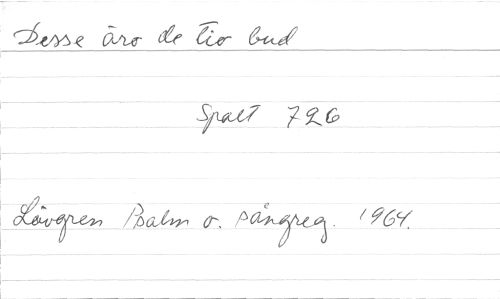 Desse äro de tio bud
Spalt 726
Lövgren Psalm o. sångreg. 1964.